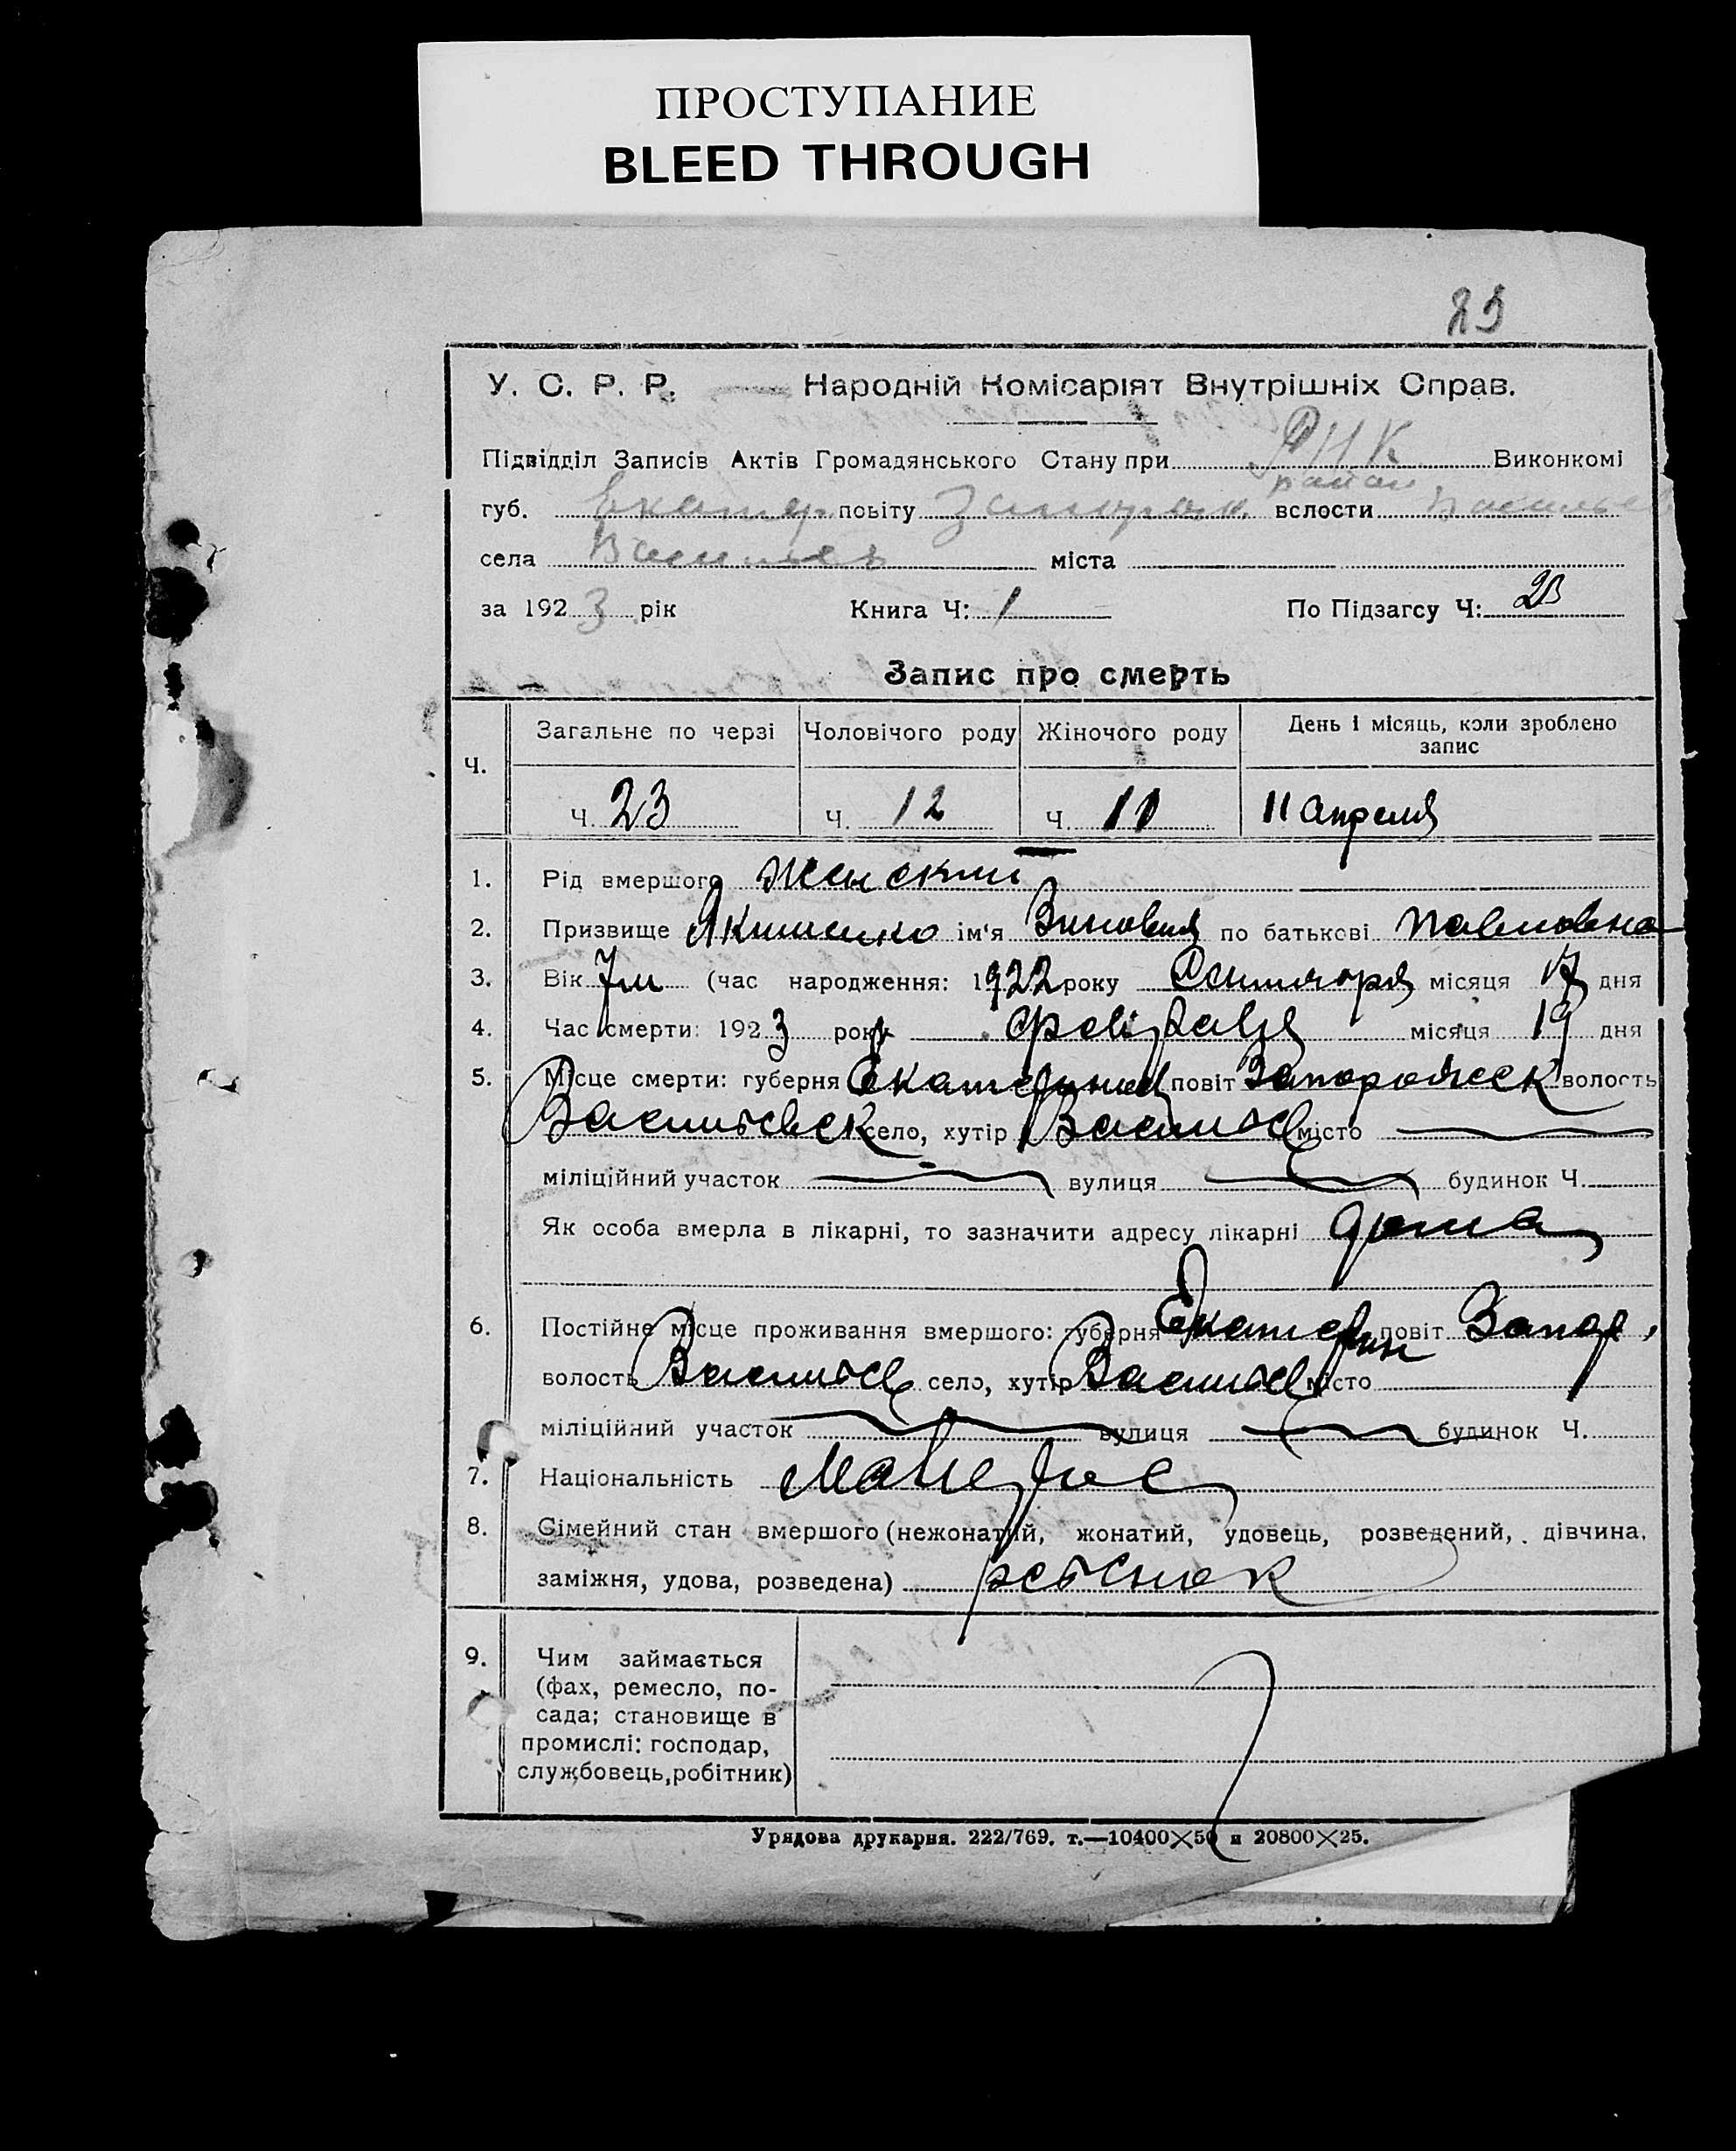 ПРОСТУПАНИЕ
BLEED THROUGH
23
У. С. Р. Р. Народній Комісаріят Внутрішніх Справ.
Підвідділ Записів Актів Громадянського Стану при РИК Виконкомі
район
губ. Екатер. повіту Запорож. волости Васильев
села Васильев міста
за 1923 рік Книга Ч: 1 По Підзагсу Ч: 23
Запис про смерть
Ч. Загальне по черзі Чоловічого роду Жіночого роду День і місяць, коли зроблено запис
Ч. 23 Ч. 12 Ч. 11 11 апреля
1. Рід вмершого женский
2. Призвище Якименко ім'я Зиновия по батькові Павловна
3. Вік 7м (час народження: 1922 року місяця 17 дня
4. Час смерти: 1923 року февраля місяця 19 дня
5. Місце смерти: губерня Екатеринос повіт Запорожск волость
Васильевск село, хутір Васильев місто
міліційний участок вулиця будинок Ч.
Як особа вмерла в лікарні, то зазначити адресу лікарні дома
6. Постійне місце проживання вмершого: губерня Екатерин повіт Запор.
волость Васильев село, хутір Васильев місто
міліційний участок вулиця будинок Ч.
7. Національність Малорос
8. Сімейний стан вмершого (нежонатий, жонатий, удовець, розведений, дівчина,
заміжня, удова, розведена) ребенок
9. Чим займається
(фах, ремесло, по-
сада; становище в
промислі: господар,
службовець, робітник)
Урядова друкарня. 222/769. т.—10400×50 и 20800×25.